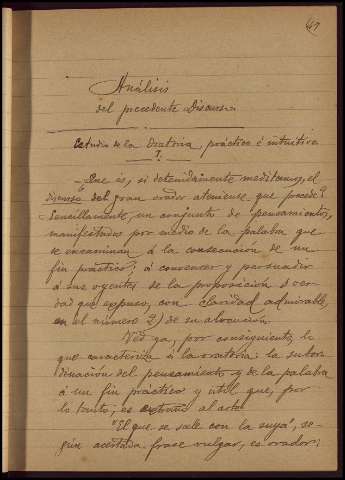 41
Análisis
del precedente Discurso
Estudio de la Oratoria, práctico é intuitivo
1.
—Que es, si detenidamente meditamos, el
discurso del gran orador ateniense que precede?
Sencillamente, un conjunto de pensamientos,
manifestados por medio de la palabra que
se encaminan á la consecución de un
fin práctico; á convencer y persuadir
á sus oyentes de la proposición ó ver
dad que expuso, con claridad admirable,
en el número 2) de su alocución.
Ved ya, por consiguiente, lo
que caracteriza á la oratoria: la subor
dinación del pensamiento y de la palabra
á un fin práctico y útil que, por
lo tanto, es extraño al arte.
"El que se sale con la suya", se-
gún acertada frase vulgar, es orador;